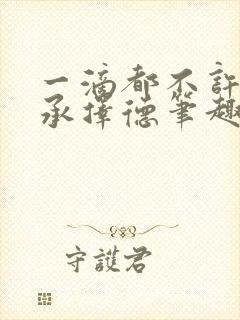 一滴都不許
承擇德筆趣
守護君